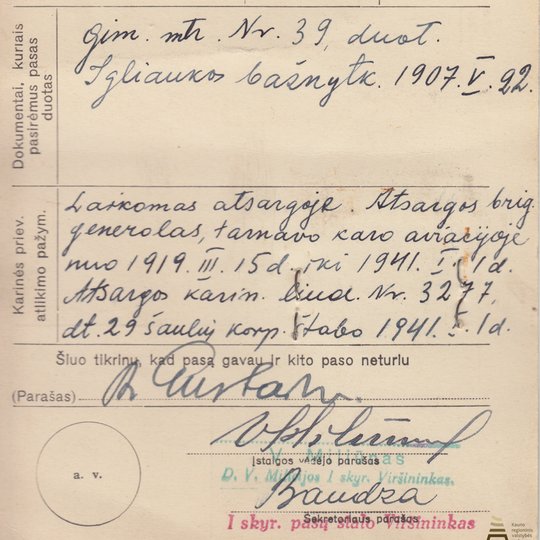 Dokumentai, kuriais
pasirėmus pasas
duotas
gim. mtr. Nr. 39, duot.
Igliaukos bažnytk. 1907.V.22.
Karinės priev.
atlikimo pažym.
Laikomas atsargoje. Atsargos brig.
generolas, tarnavo karo aviacijoje
nuo 1919.III.15d. iki 1941.I.1d.
Atsargos karin. liud. Nr. 3277,
dt. 29 šaulių korp. štabo 1941.I.1d.
Šiuo tikrinu, kad pasą gavau ir kito paso neturiu
(Parašas)
V. Miliūnas
Įstaigos vedėjo parašas
D. V. Milicijos I skyr. Viršininkas.
a. v.
Baudza
I skyr. pasų stalo Viršininkas
Sekretoriaus parašas
Kauno
regioninis
valstybės